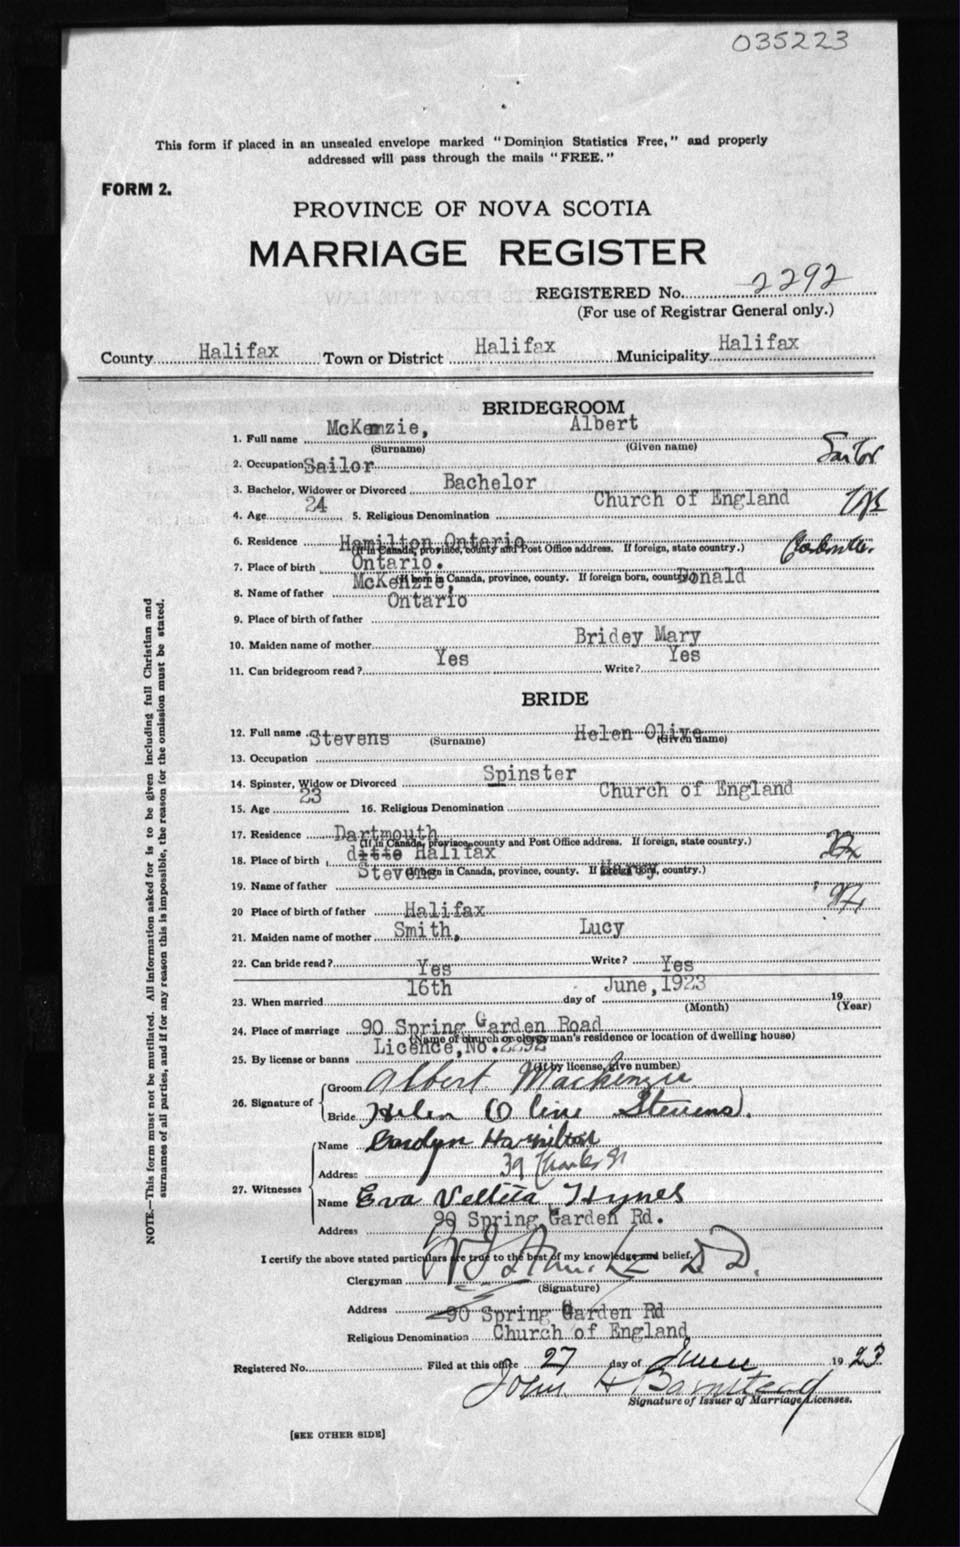 035223
This form if placed in an unsealed envelope marked "Dominion Statistics Free," and properly
addressed will pass through the mails "FREE."
FORM 2.
PROVINCE OF NOVA SCOTIA
MARRIAGE REGISTER
REGISTERED No. 2292
(For use of Registrar General only.)
County Halifax Town or District Halifax Municipality Halifax
BRIDEGROOM
1. Full name McKenzie, Albert
(Surname) (Given name)
2. Occupation Sailor Sailor
3. Bachelor, Widower or Divorced Bachelor
4. Age 24 5. Religious Denomination Church of England
6. Residence Hamilton Ontario
(If in Canada, province, county and Post Office address. If foreign, state country.)
7. Place of birth Ontario.
(If born in Canada, province, county. If foreign born, country.)
8. Name of father McKenzie, Donald
9. Place of birth of father Ontario
10. Maiden name of mother Bridey Mary
11. Can bridegroom read? Yes Write? Yes
BRIDE
12. Full name Stevens Helen Olive
(Surname) (Given name)
13. Occupation
14. Spinster, Widow or Divorced Spinster
15. Age 23 16. Religious Denomination Church of England
17. Residence Dartmouth
(If in Canada, province, county and Post Office address. If foreign, state country.)
18. Place of birth ditto Halifax
(If born in Canada, province, county. If foreign born, country.)
19. Name of father Stevens Harry
20 Place of birth of father Halifax
21. Maiden name of mother Smith, Lucy
22. Can bride read? Yes Write? Yes
23. When married 16th day of June, 1923 19
(Month) (Year)
24. Place of marriage 90 Spring Garden Road
(Name of church or clergyman's residence or location of dwelling house)
25. By license or banns Licence, No. 2292
(If by license, give number.)
26. Signature of
Groom Albert Mackenzie
Bride Helen Oline Stevens.
27. Witnesses
Name Hamilton
Address 39 Charles St
Name Eva Hynes
Address 90 Spring Garden Rd.
I certify the above stated particulars are true to the best of my knowledge and belief,
Clergyman D D.
(Signature)
Address 90 Spring Garden Rd
Religious Denomination Church of England
Registered No. Filed at this office 27 day of June 1923
John H Barnstead
Signature of Issuer of Marriage Licenses.
[SEE OTHER SIDE]
NOTE.—This form must not be mutilated. All information asked for is to be given including full Christian and
surnames of all parties, and if for any reason this is impossible, the reason for the omission must be stated.